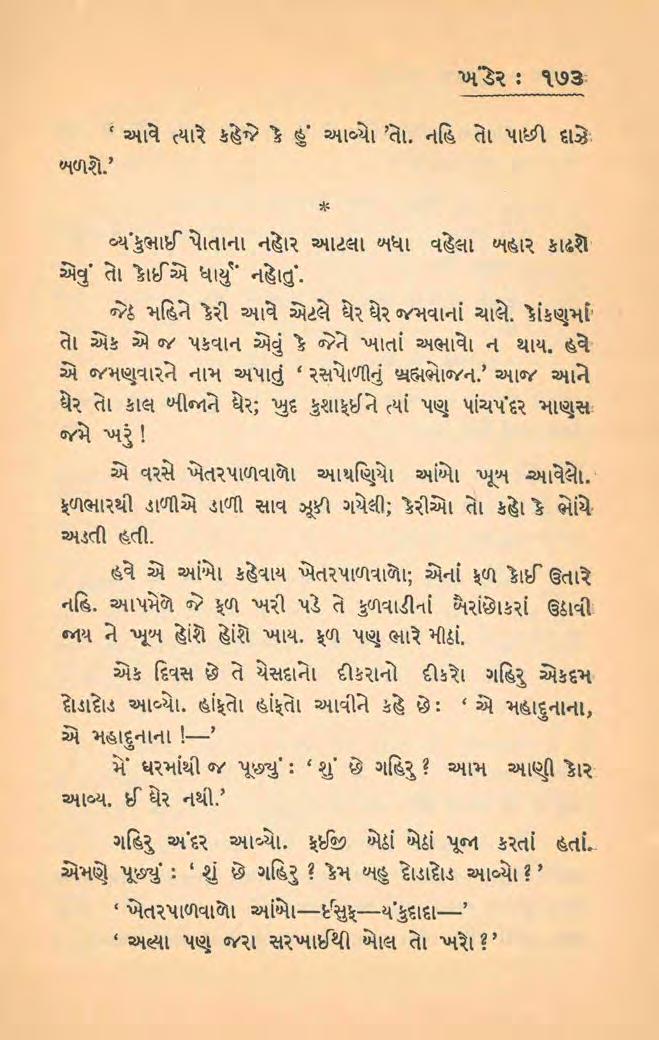 ખંડેર : ૧૭૩
‘ આવે ત્યારે કહેજે કે હું આવ્યો ’તો. નહિ તો પાછી દાઝે
બળશે.’
*
વ્યંકુભાઈ પોતાના નહોર આટલા બધા વહેલા બહાર કાઢશે
એવું તો કોઈએ ધાર્યું નહોતું.
જેઠ મહિને કેરી આવે એટલે ઘેર ઘેર જમવાનાં ચાલે. કોંકણમાં
તો એક એ જ પકવાન એવું કે જેને ખાતાં અભાવો ન થાય. હવે
એ જમણવારને નામ અપાતું ‘ રસપોળીનું બ્રહ્મભોજન.’ આજ આને
ઘેર તો કાલ બીજાને ઘેર; ખુદ કુશાફઈને ત્યાં પણ પાંચપંદર માણસ
જમે ખરું !
એ વરસે ખેતરપાળવાળો આથણિયો આંબો ખૂબ આવેલો.
ફળભારથી ડાળીએ ડાળી સાવ ઝૂકી ગયેલી; કેરીઓ તો કહો કે ભોંયે
અડતી હતી.
હવે એ આંબો કહેવાય ખેતરપાળવાળો; એનાં ફળ કોઈ ઉતારે
નહિ. આપમેળે જે ફળ ખરી પડે તે કુળવાડીનાં બૈરાંછોકરાં ઉઠાવી
જાય ને ખૂબ હોંશે હોંશે ખાય. ફળ પણ ભારે મીઠાં.
એક દિવસ છે તે યેસદાનો દીકરાનો દીકરો ગહિરુ એકદમ
દોડાદોડ આવ્યો. હાંફતો હાંફતો આવીને કહે છે : ‘ એ મહાદુનાના,
એ મહાદુનાના !—’
મેં ઘરમાંથી જ પૂછ્યું : ‘ શું છે ગહિરુ ? આમ આણી કોર
આવ્ય. ઈ ઘેર નથી.’
ગહિરુ અંદર આવ્યો. ફઈજી બેઠાં બેઠાં પૂજા કરતાં હતાં.
એમણે પૂછ્યું : ‘ શું છે ગહિરુ ? કેમ બહુ દોડાદોડ આવ્યો ? ’
‘ ખેતરપાળવાળો આંબો—ઈસુફ—યંકુદાદા—’
‘ અલ્યા પણ જરા સરખાઈથી બોલ તો ખરો ? ’